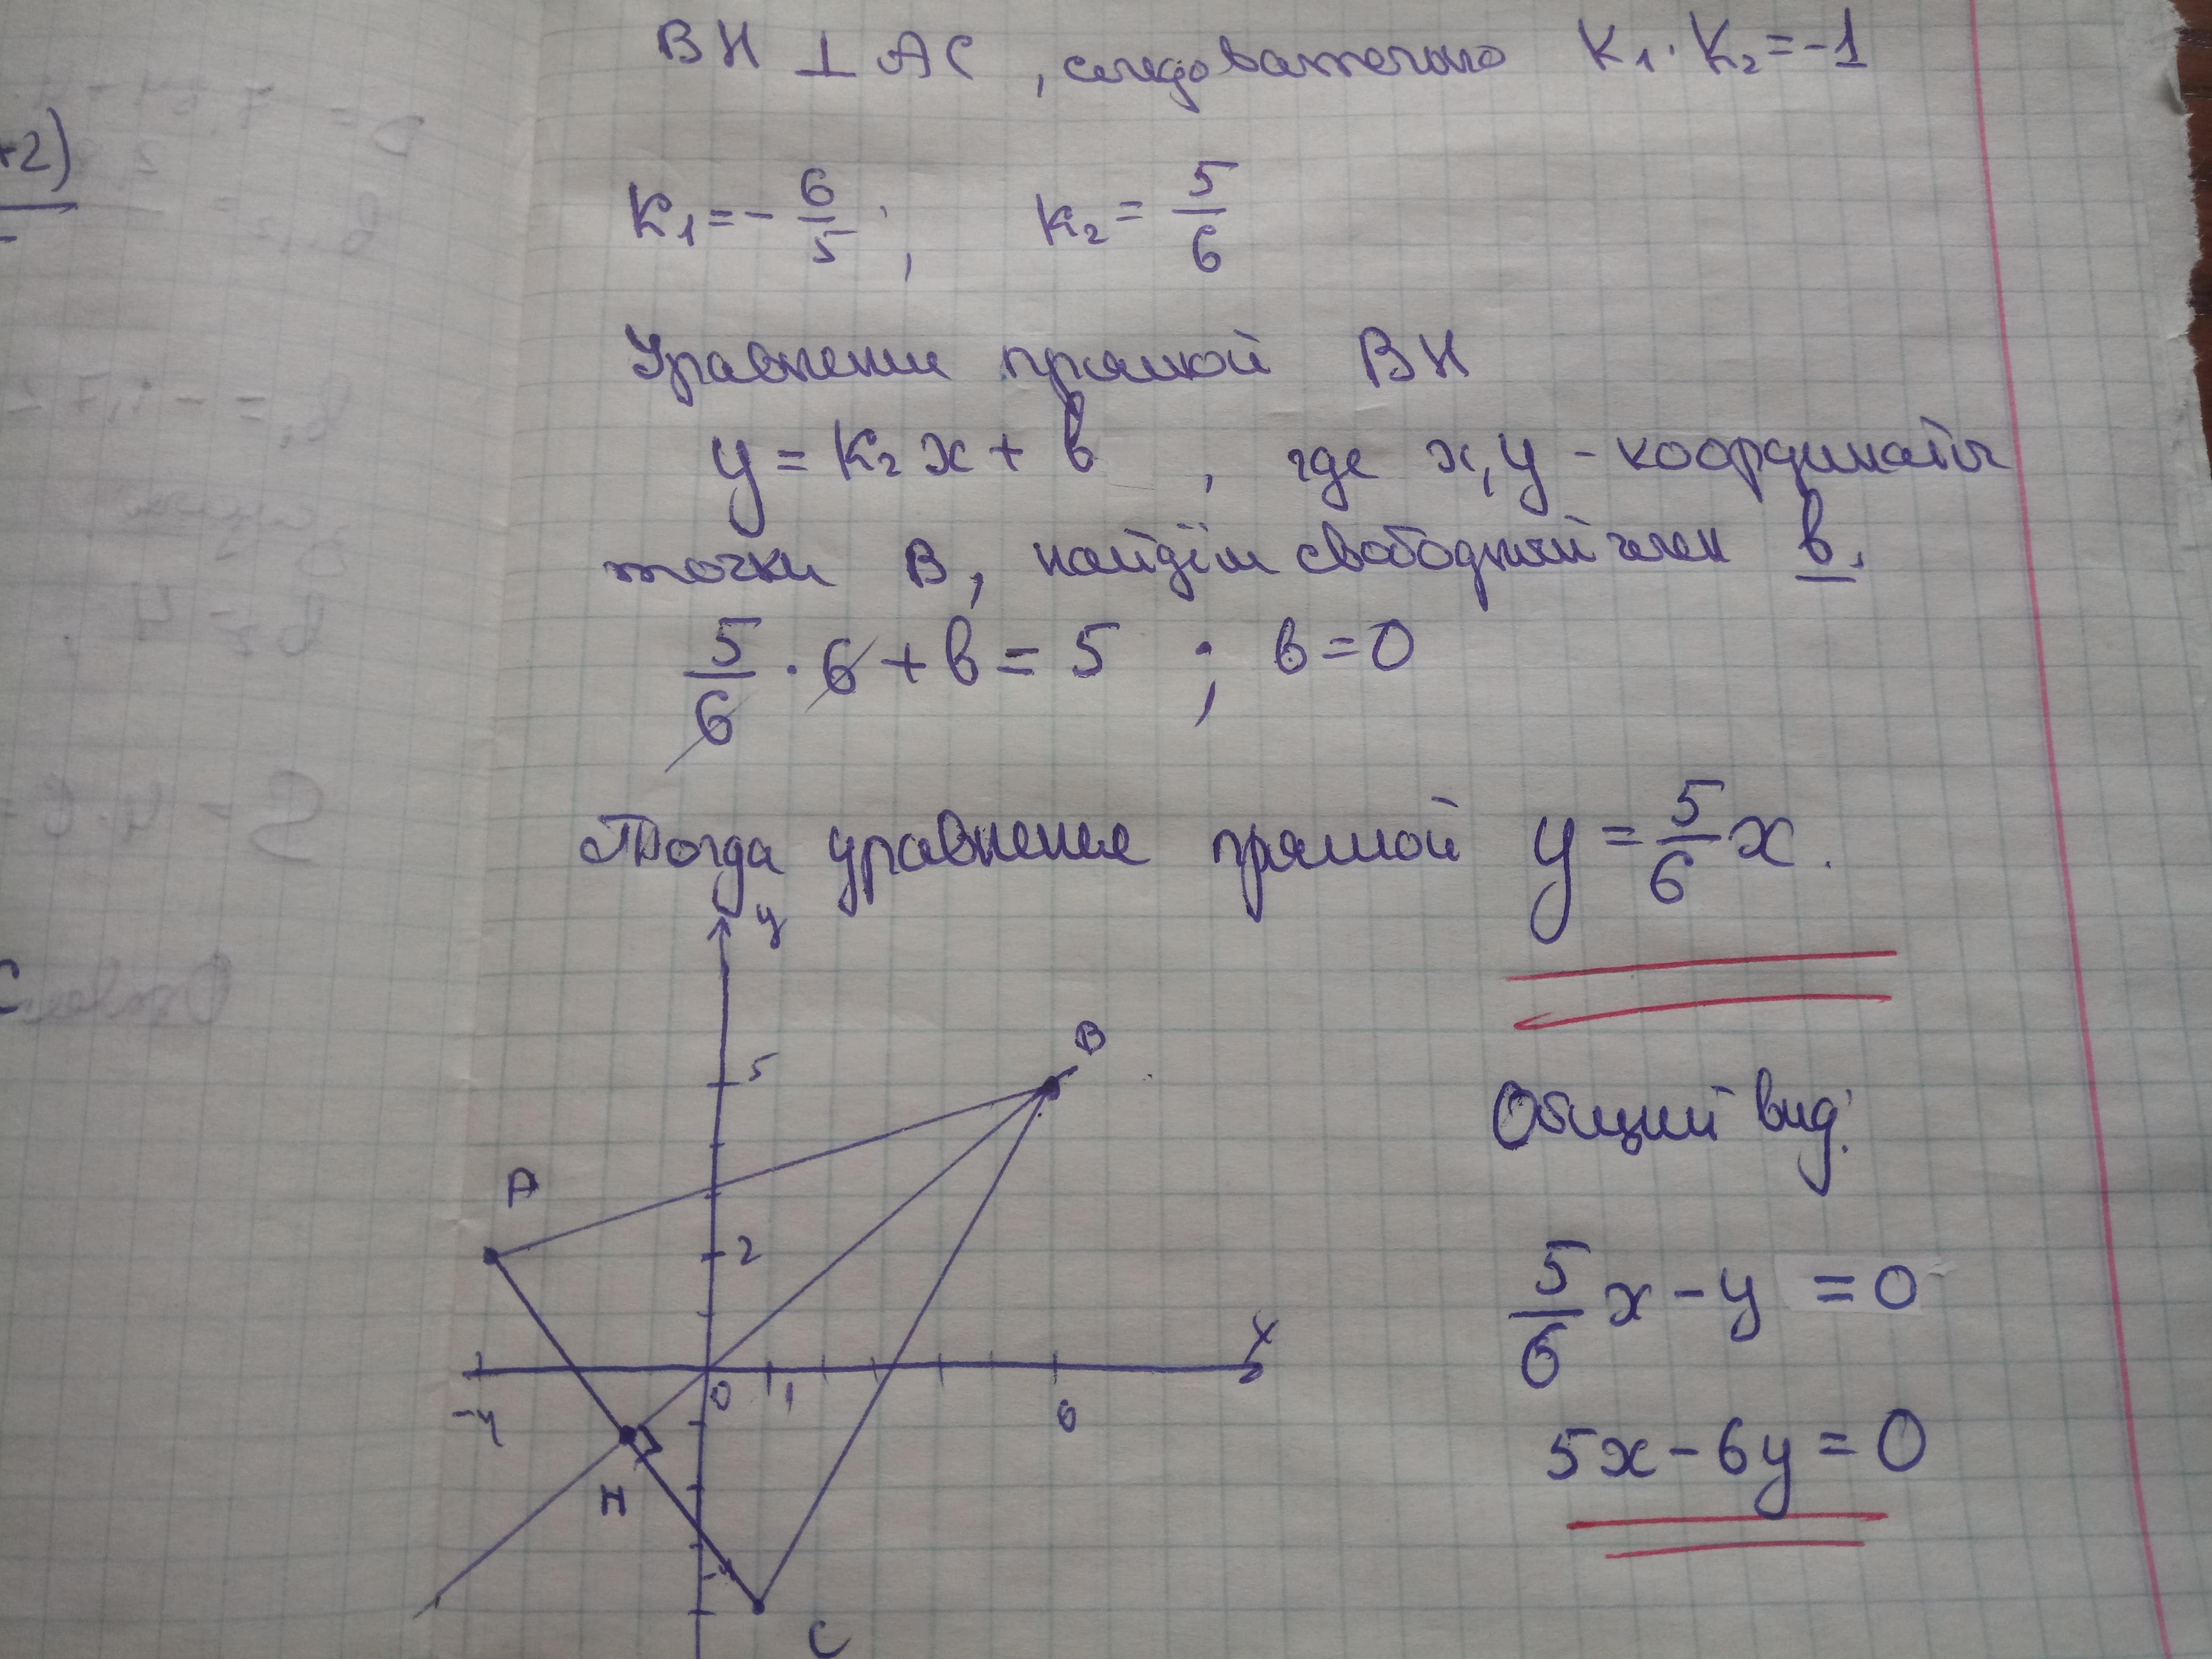 BH ⊥ AC, следовательно K₁ · K₂ = -1
K₁ = - 6/5 ; K₂ = 5/6
Уравнение прямой BH
y = K₂ x + b , где x, y - координаты
точки B, найдём свободный член b.
5/6 · 6 + b = 5 ; b = 0
Тогда уравнение прямой y = 5/6 x.
y
B
5
Общий вид:
A
2
5/6 x - y = 0
x
-4 0 1 6
5x - 6y = 0
H
C
+2)